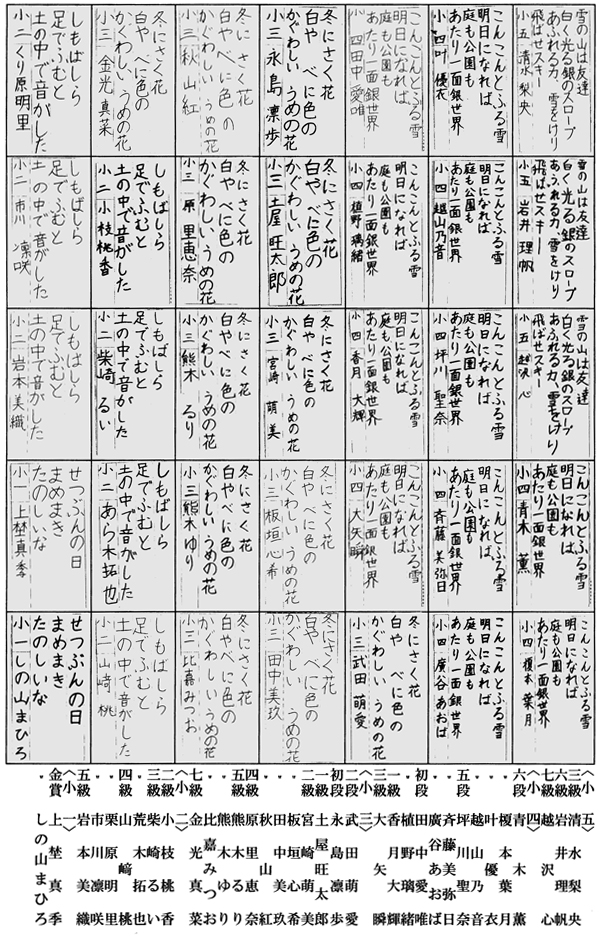 雪の山は友達
白く光る銀のスロープ
あふれる力、雪をけり
飛ばせスキー
小五 清水梨央
雪の山は友達
白く光る銀のスロープ
あふれる力、雪をけり
飛ばせスキー
小五 岩井理帆
雪の山は友達
白く光る銀のスロープ
あふれる力、雪をけり
飛ばせスキー
小五 越沢心
こんこんとふる雪
明日になれば、
庭も公園も
あたり一面銀世界
小四 青木薫
こんこんとふる雪
明日になれば、
庭も公園も
あたり一面銀世界
小四 榎本葉月
こんこんとふる雪
明日になれば、
庭も公園も
あたり一面銀世界
小四 叶優衣
こんこんとふる雪
明日になれば、
庭も公園も
あたり一面銀世界
小四 越山乃音
こんこんとふる雪
明日になれば、
庭も公園も
あたり一面銀世界
小四 坪川聖奈
こんこんとふる雪
明日になれば、
庭も公園も
あたり一面銀世界
小四 斉藤美弥日
こんこんとふる雪
明日になれば、
庭も公園も
あたり一面銀世界
小四 廣谷あおば
こんこんとふる雪
明日になれば、
庭も公園も
あたり一面銀世界
小四 田中愛唯
こんこんとふる雪
明日になれば、
庭も公園も
あたり一面銀世界
小四 植野璃緒
こんこんとふる雪
明日になれば、
庭も公園も
あたり一面銀世界
小四 香月大輝
こんこんとふる雪
明日になれば、
庭も公園も
あたり一面銀世界
小四 大矢瞬
冬にさく花
白や べに色の
かぐわしい うめの花
小三 武田萌愛
冬にさく花
白や べに色の
かぐわしい うめの花
小三 永島凛歩
冬にさく花
白や べに色の
かぐわしい うめの花
小三 土屋旺太郎
冬にさく花
白や べに色の
かぐわしい うめの花
小三 宮崎萌美
冬にさく花
白や べに色の
かぐわしい うめの花
小三 板垣心希
冬にさく花
白や べに色の
かぐわしい うめの花
小三 田中美玖
冬にさく花
白や べに色の
かぐわしい うめの花
小三 秋山紅
冬にさく花
白や べに色の
かぐわしい うめの花
小三 原里恵奈
冬にさく花
白や べに色の
かぐわしい うめの花
小三 熊木るり
冬にさく花
白や べに色の
かぐわしい うめの花
小三 熊木ゆり
冬にさく花
白や べに色の
かぐわしい うめの花
小三 比嘉みつお
冬にさく花
白や べに色の
かぐわしい うめの花
小三 金光真菜
しもばしら
足でふむと
土の中で音がした
小二 小枝桃香
しもばしら
足でふむと
土の中で音がした
小二 柴崎るい
しもばしら
足でふむと
土の中で音がした
小二 あら木拓也
しもばしら
足でふむと
土の中で音がした
小二 山崎桃
しもばしら
足でふむと
土の中で音がした
小二 くり原明里
しもばしら
足でふむと
土の中で音がした
小二 市川凛咲
しもばしら
足でふむと
土の中で音がした
小二 岩本美織
せつぶんの日
まめまき
たのしいな
小一 上埜真季
せつぶんの日
まめまき
たのしいな
小一 しの山まひろ
〈小五〉
三級 清水梨央
六級 岩井理帆
七級 越沢心
〈小四〉
六段 青木薫
〃 榎本葉月
〃 叶優衣
〃 越山乃音
五段 坪川聖奈
〃 斉藤美弥日
〃 廣谷あおば
初段 田中愛唯
〃 植野璃緒
一級 香月大輝
三級 大矢瞬
〈小三〉
二段 武田萌愛
初段 永島凛歩
一級 土屋旺太郎
二級 宮崎萌美
〃 板垣心希
〃 田中美玖
四級 秋山紅
〃 原里恵奈
五級 熊木るり
〃 熊木ゆり
〃 比嘉みつお
七級 金光真菜
〈小二〉
二級 小枝桃香
三級 柴崎るい
〃 荒木拓也
四級 山崎桃
〃 栗原明里
〃 市川凛咲
五級 岩本美織
〈小一〉
金賞 上埜真季
〃 しの山まひろ